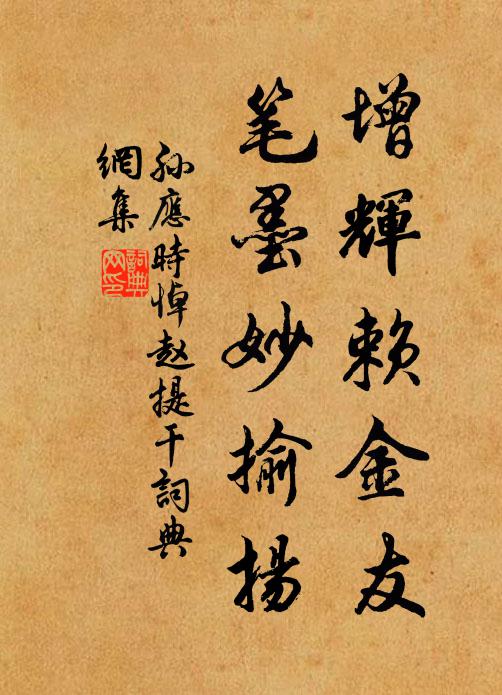 增輝賴金友
笔墨妙揄揚
孙應時悼赵提干詞典
網集
詞典网印